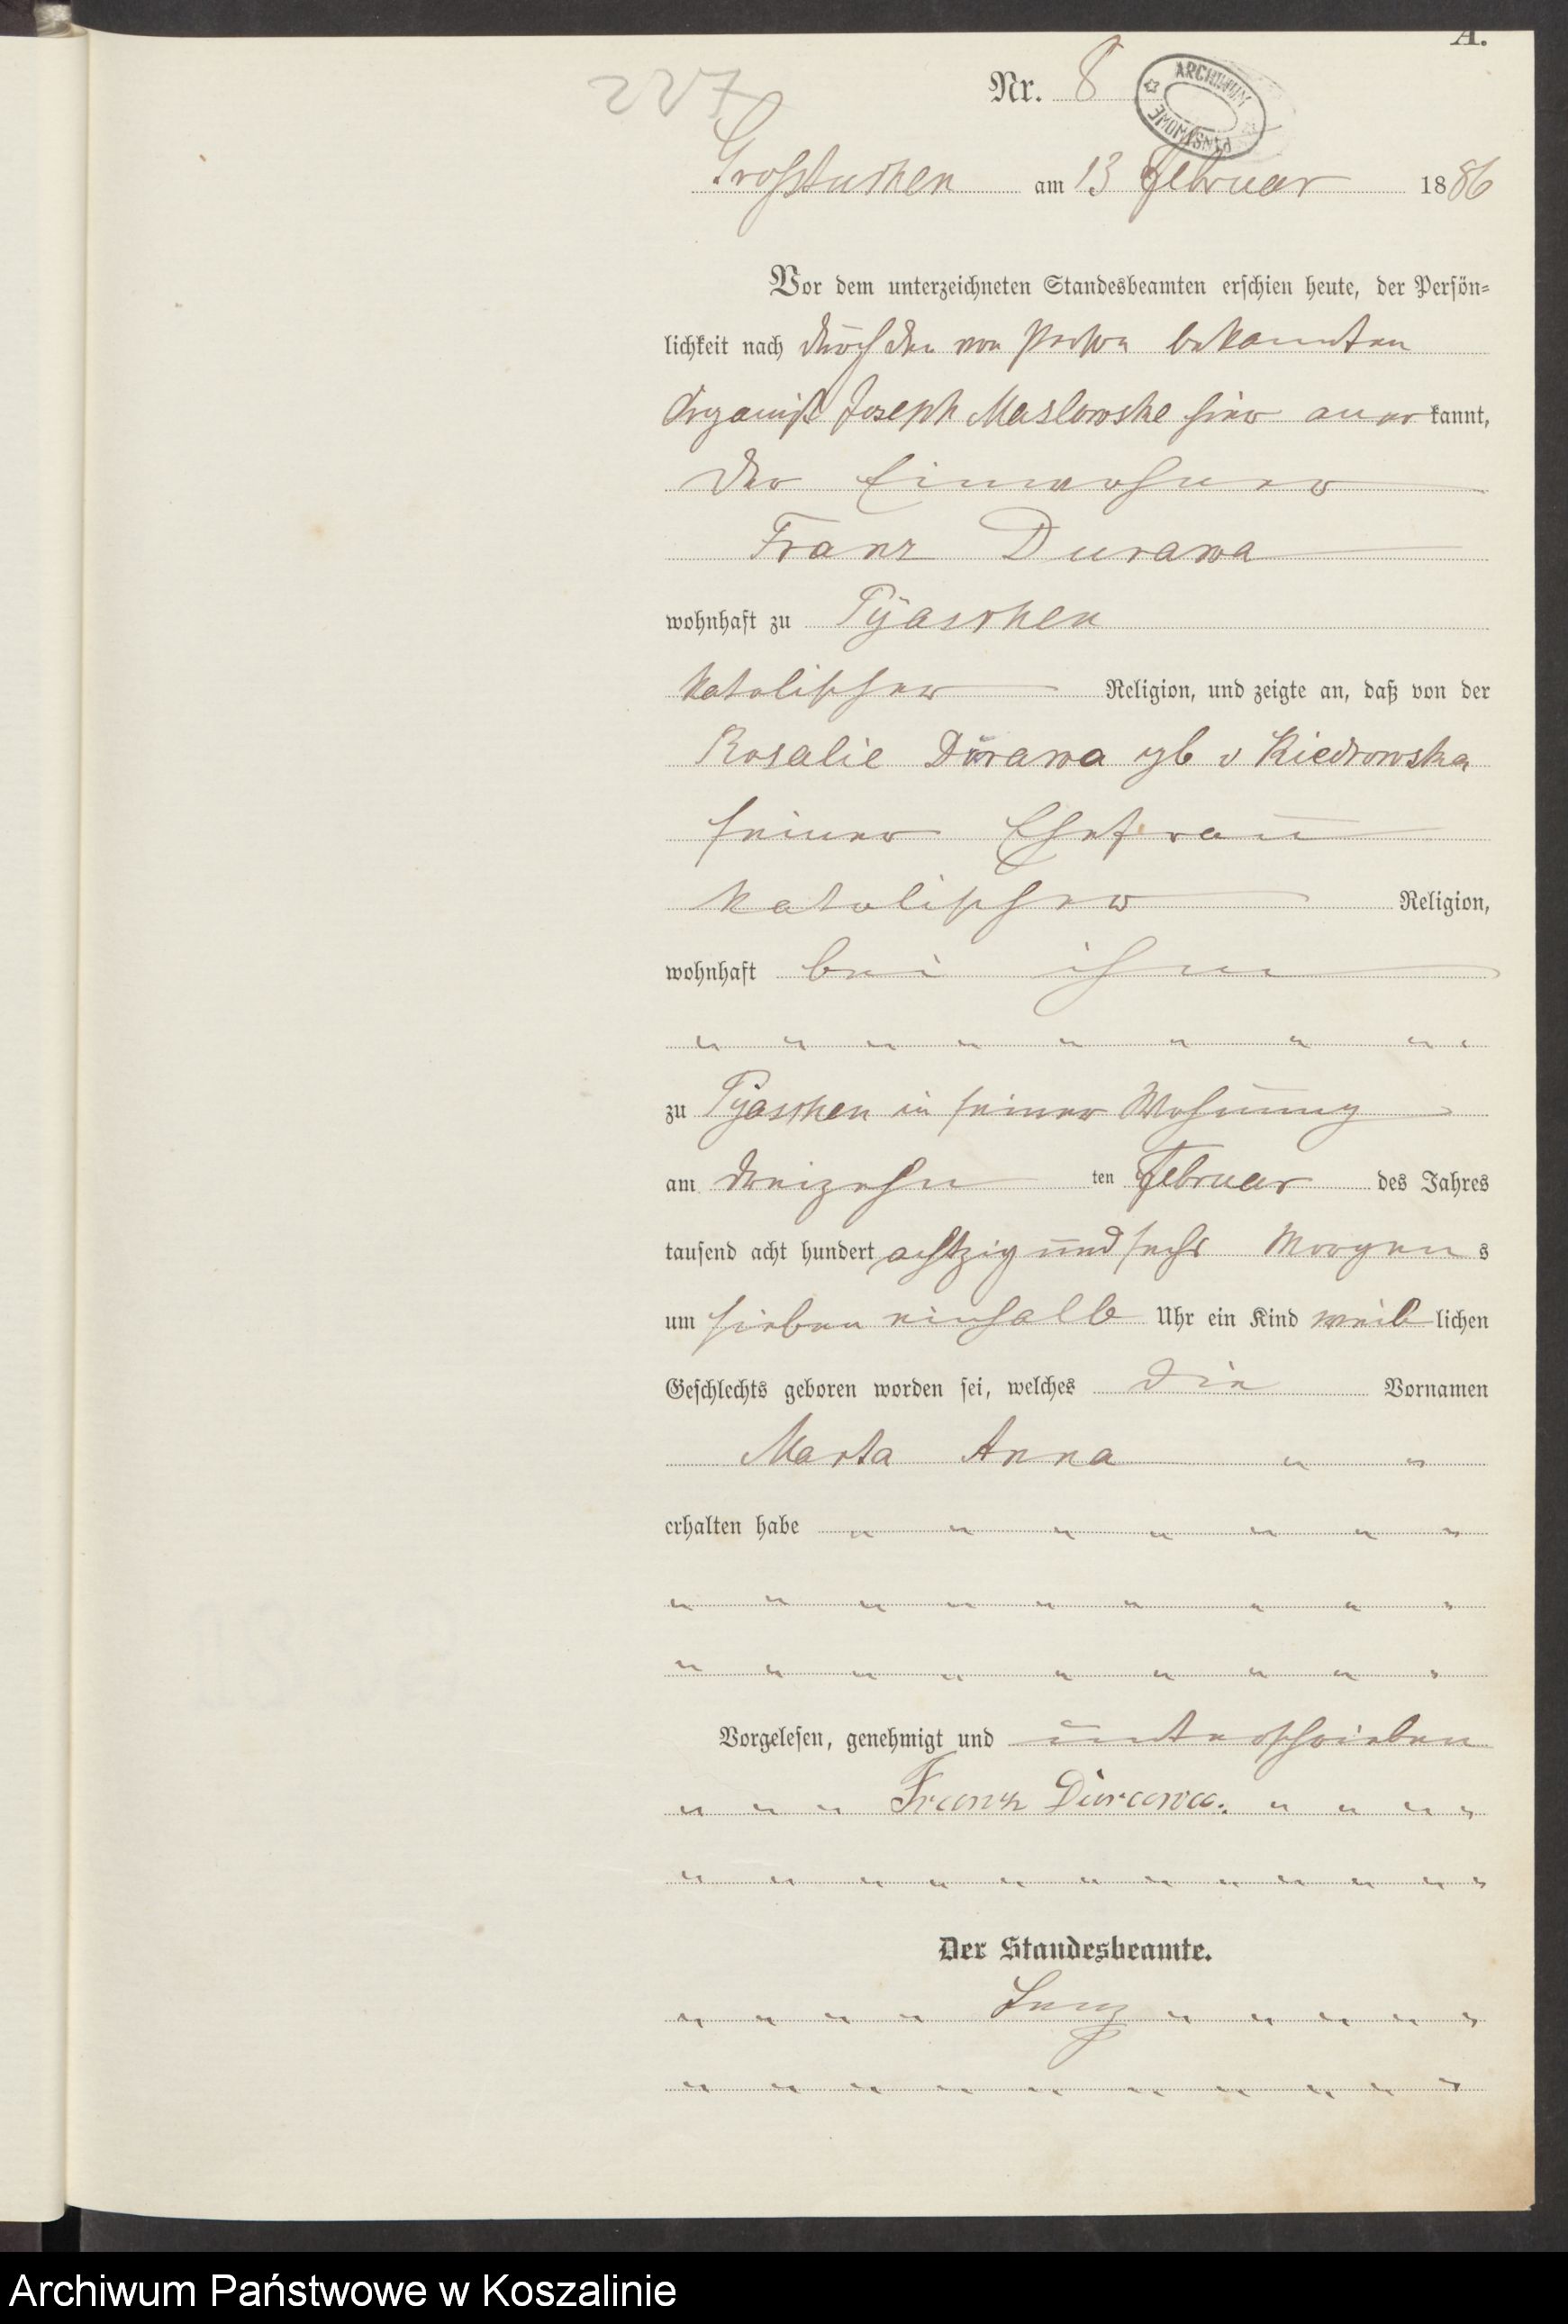 A.
227
Nr. 8
ARCHIWUM PAŃSTWOWE
Großtuchen am 13 Februar 1886
Vor dem unterzeichneten Standesbeamten erschien heute, der Persön=
lichkeit nach durch den von Person bekannten
Organist Joseph Maslowske hier anerkannt,
der Einwohner
Franz Durawa
wohnhaft zu Pÿaschen
katolischer Religion, und zeigte an, daß von der
Rosalie Durawa geb v Kiedrowska
seiner Ehefrau
katolischer Religion,
wohnhaft bei ihm
zu Pÿaschen in seiner Wohnung
am dreizehn ten Februar des Jahres
tausend acht hundert achtzig und sechs Morgens
um sieben einhalb Uhr ein Kind weiblichen
Geschlechts geboren worden sei, welches die Vornamen
Marta Anna
erhalten habe
Vorgelesen, genehmigt und unterschrieben
Franz Durawa.
Der Standesbeamte.
Lenz
Archiwum Państwowe w Koszalinie